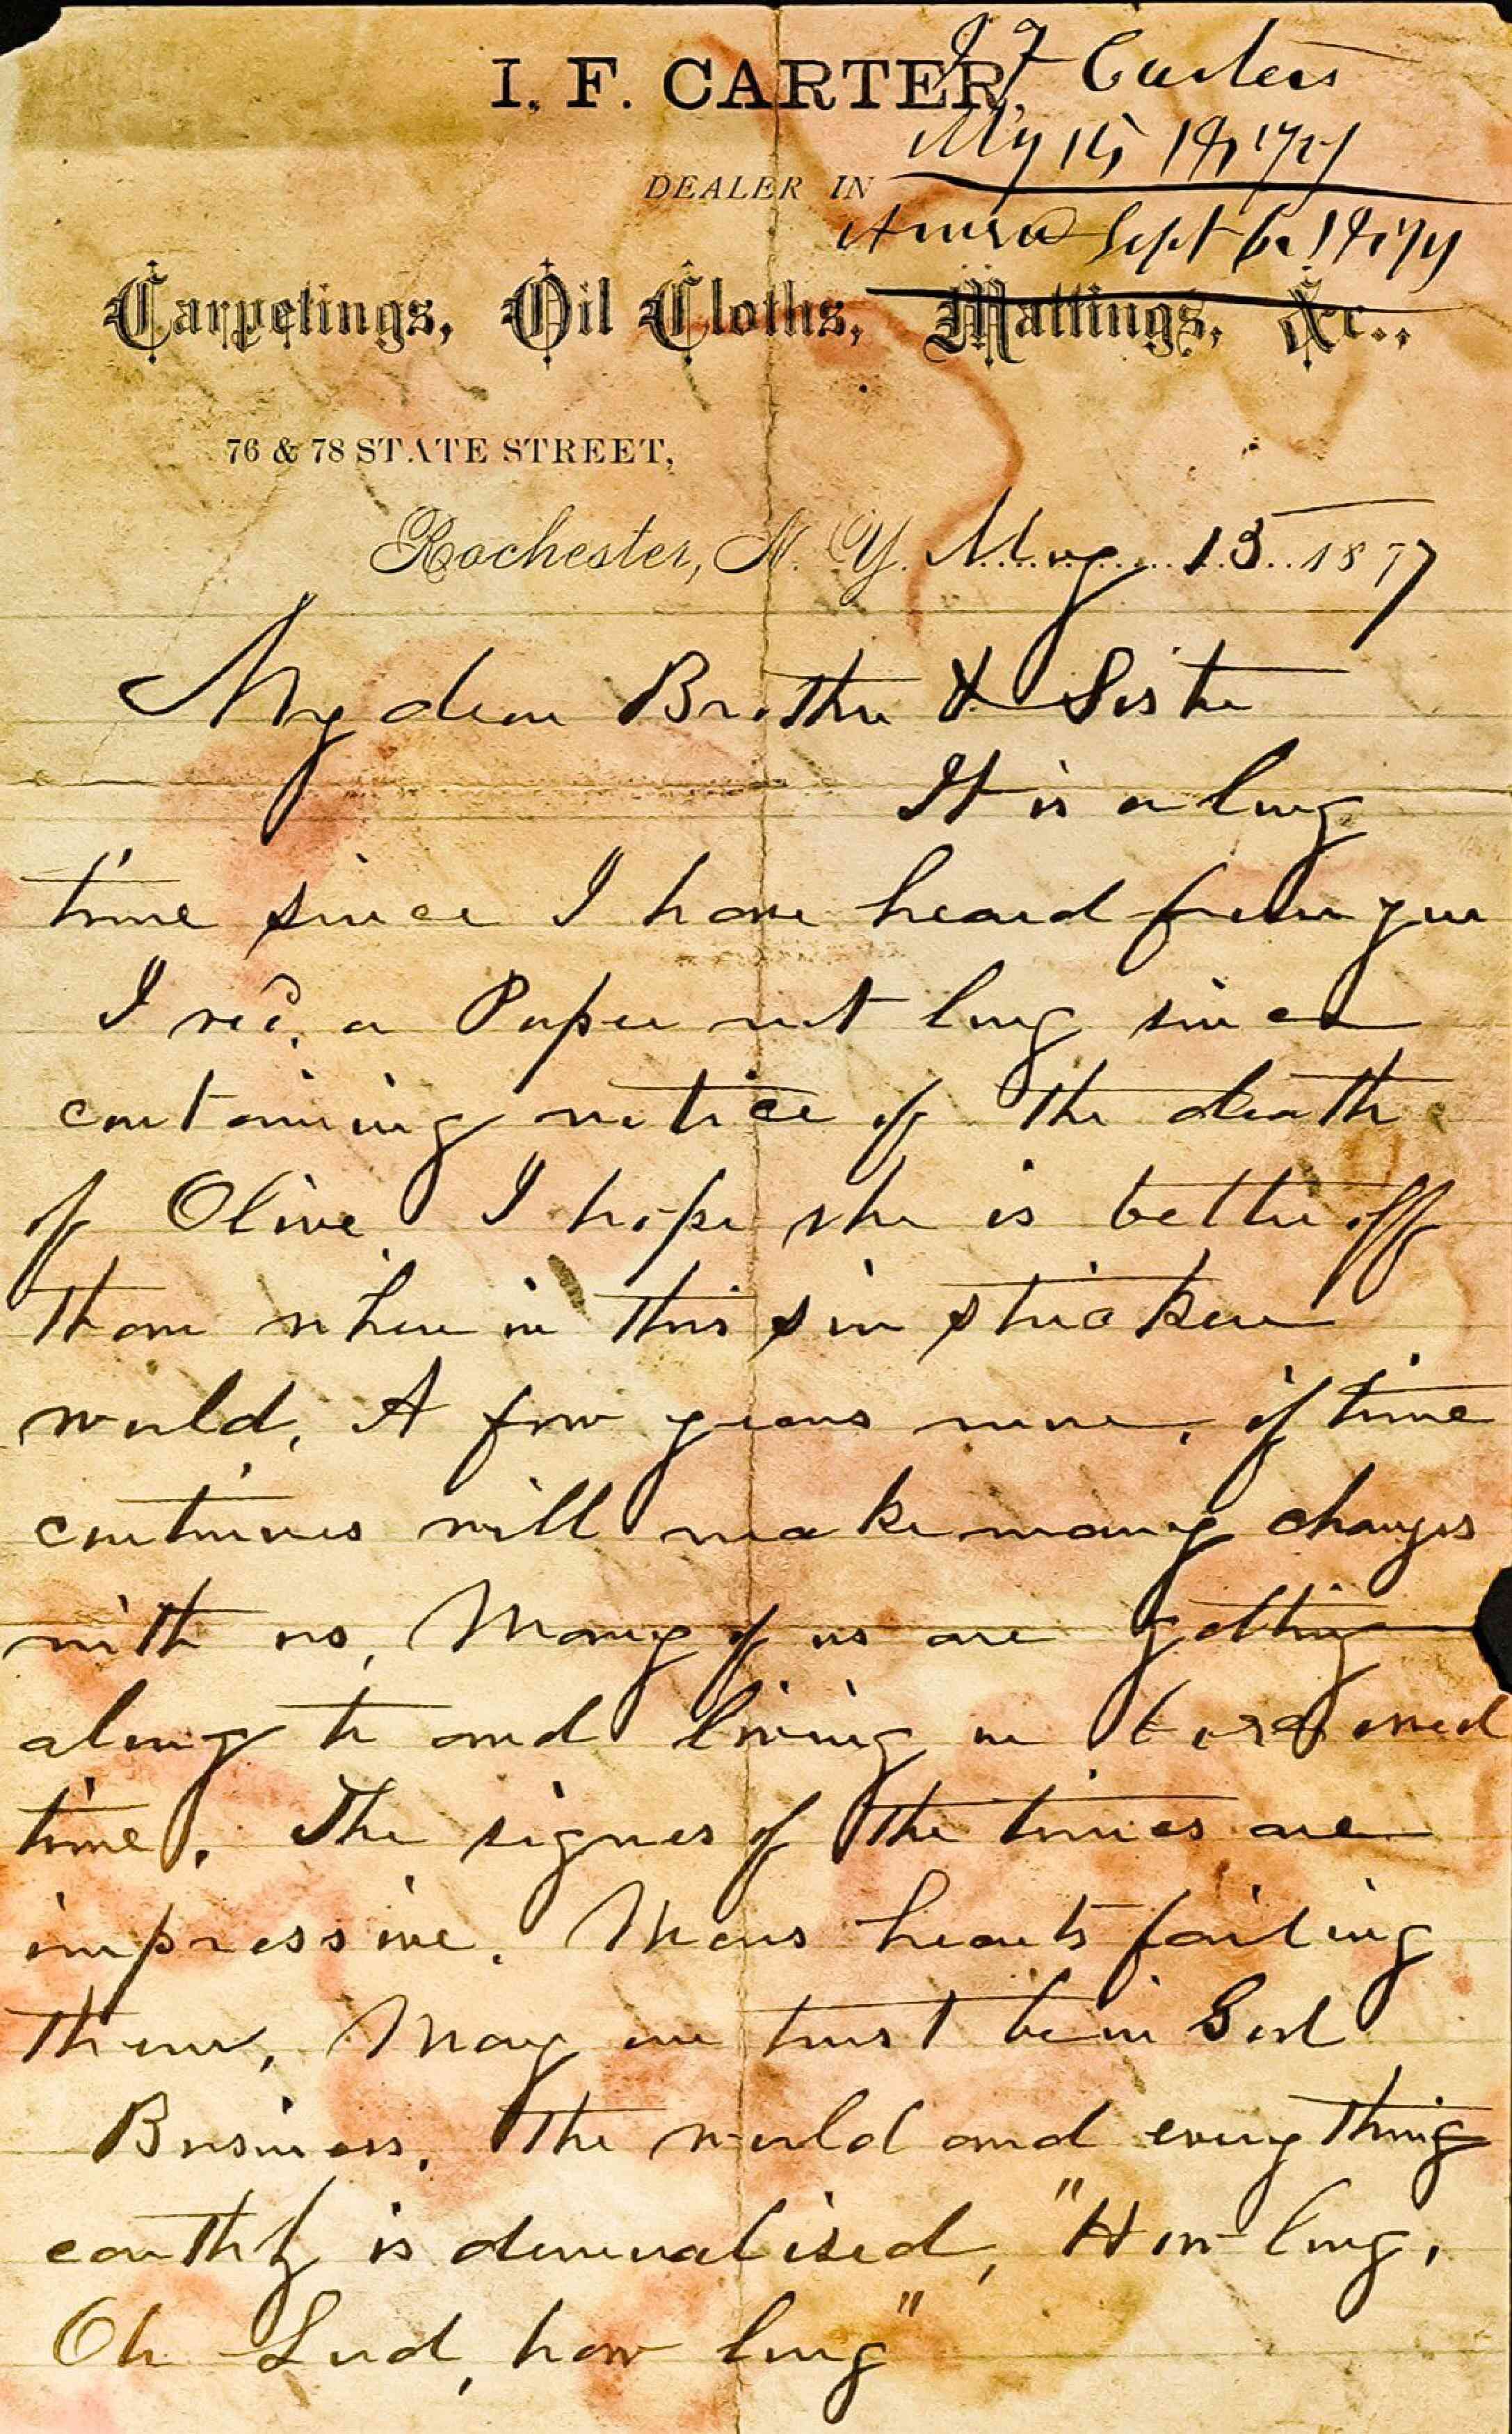 I. F. CARTER,
I F Carters
DEALER IN
Answd Sept 6
Carpetings, Oil Cloths, Mattings, &c.,
76 & 78 STATE STREET,
Rochester, N. Y. 15 1877
My dear Brother & Sister
It is a long
time since I have heard from you
I recd. a Paper not long since
containing notice of the death
of Olive I hope she is better off
than when in this sin stricken
world, A few years more, if time
continues will make many changes
with us, Many of us are getting
along to and living on
time. The signes of the times are
impressive. Mens hearts failing
them, May our trust be in God
Business, The world and every thing
earthly is demoralised, "How long,
Oh Lord, how long"